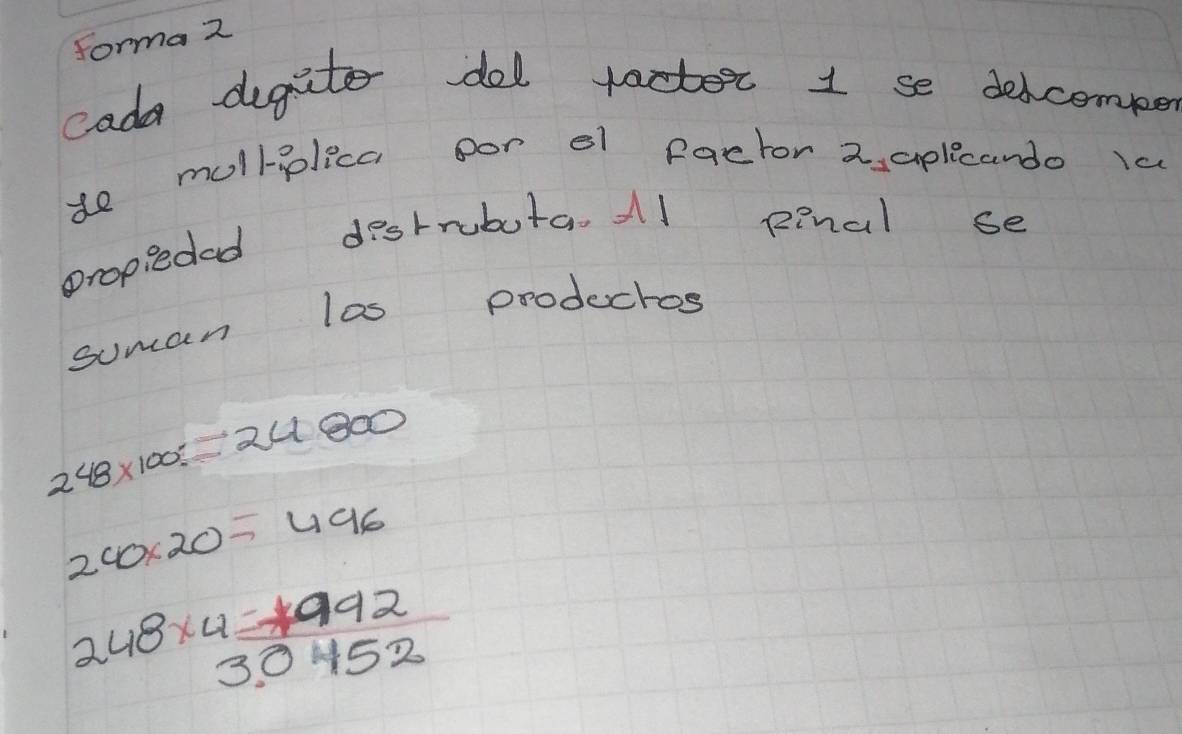 Forma 2
cada degito del factor 1 se descompon
se multiplica por el factor 2, aplicando la
propiedad distrubuta. Al final se
suman los productos
248x100:=24800
240x20=496
248x4=+992
3.0 452